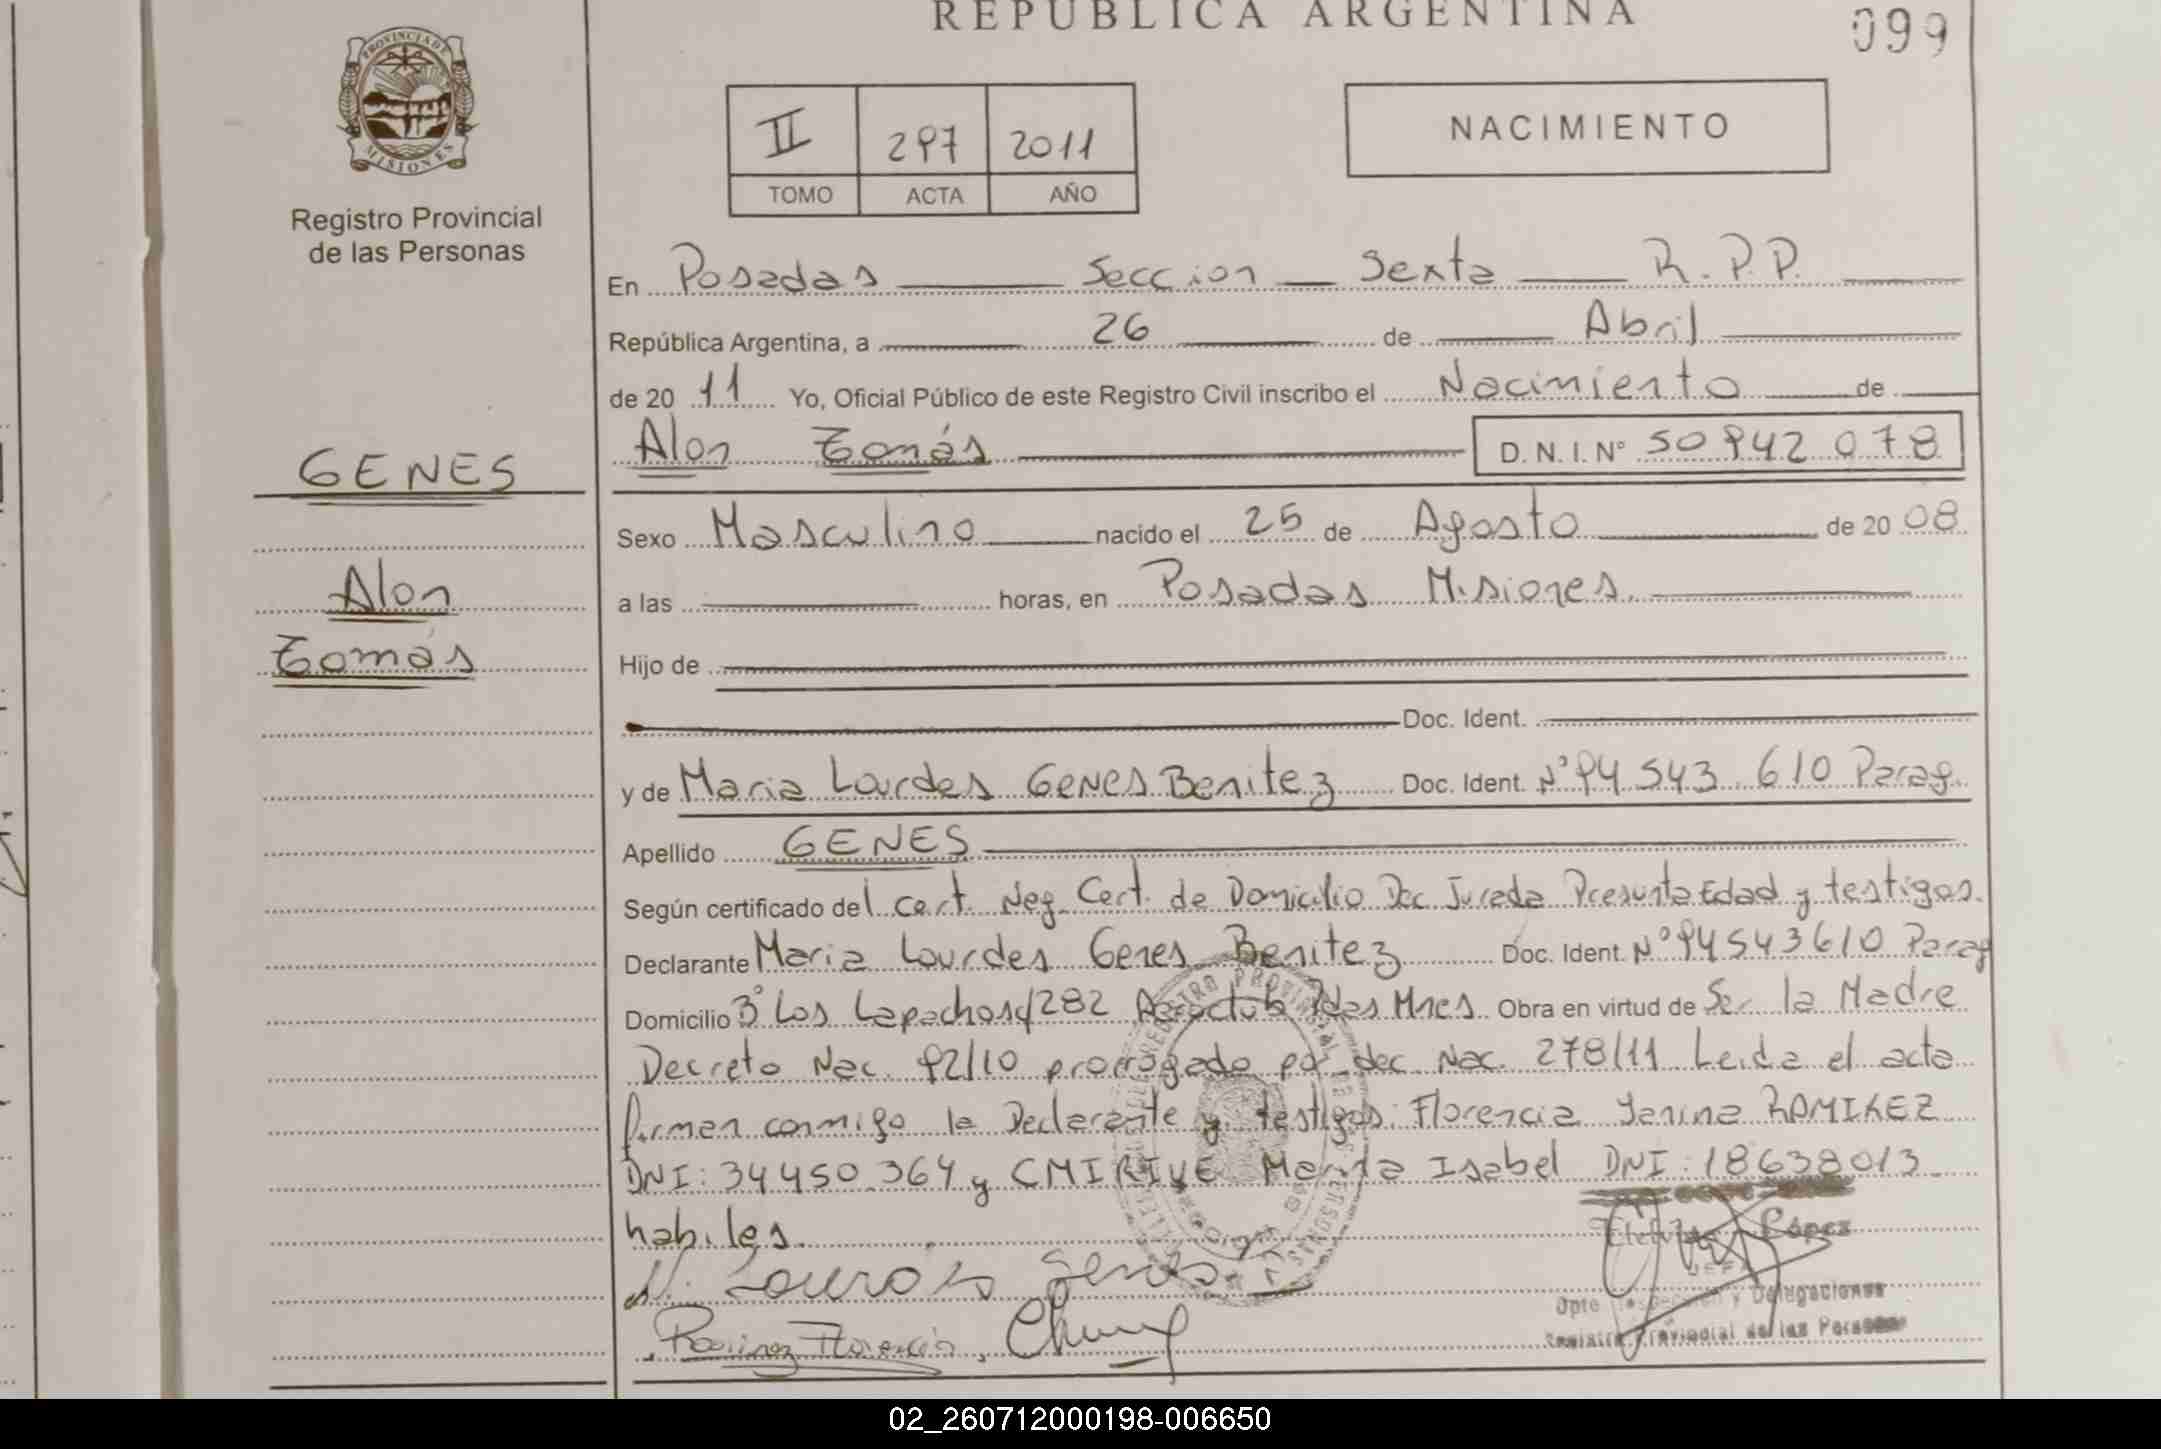 REPUBLICA ARGENTINA
099
PROVINCIA DE
MISIONES
Registro Provincial
de las Personas
II 297 2011
TOMO ACTA AÑO
NACIMIENTO
En Posadas Seccion Sexta R.P.P.
República Argentina, a 26 de Abril
de 20 11 Yo, Oficial Público de este Registro Civil inscribo el Nacimiento de
Alan Tomás D. N. I. N° 50942078
GENES
Sexo Masculino nacido el 25 de Agosto de 20 08
Alan
a las horas, en Posadas Misiones
Tomás
Hijo de
Doc. Ident.
y de Maria Lourdes GENES Benitez Doc. Ident. N°94543.610 Parag.
Apellido GENES
Según certificado del cert. Neg. Cert. de Domicilio Dec Jurada Presunta Edad y testigos.
Declarante Maria Lourdes Genes Benitez Doc. Ident. N°94543610 Parag
Domicilio B° Los Lapachos 282 Aeroclub Pdas Mnes Obra en virtud de Ser la Madre
Decreto Nac. 92/10 prorrogado por dec Nac. 278/11 Leida el acta
firman conmigo la Declarante y testigos: Florencia Yanina RAMIREZ
DNI: 34450.364 y Isabel DNI: 18638013
habiles.
M. Lourdes Genes
López
JEFA
Dpto Inspección y Delegaciones
Registro Provincial de las Personas
Ramirez Florencia
02_260712000198-006650